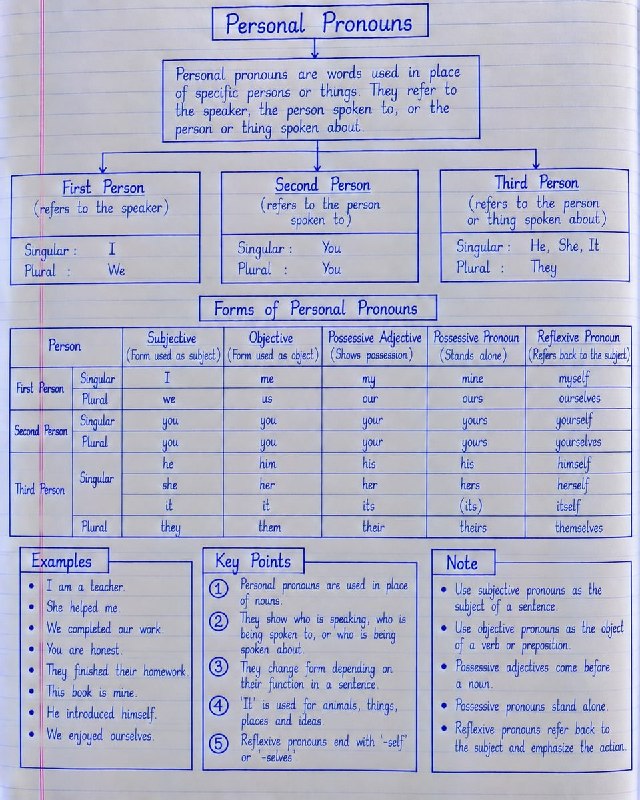 Personal Pronouns
Personal pronouns are words used in place
of specific persons or things. They refer to
the speaker, the person spoken to, or the
person or thing spoken about.
First Person
(refers to the speaker)
Singular : I
Plural : We
Second Person
(refers to the person
spoken to)
Singular : You
Plural : You
Third Person
(refers to the person
or thing spoken about)
Singular : He, She, It
Plural : They
Forms of Personal Pronouns
Person Subjective Objective Possessive Adjective Possessive Pronoun Reflexive Pronoun
(Form used as subject) (Form used as object) (Shows possession) (Stands alone) (Refers back to the subject)
First Person Singular I me my mine myself
Plural we us our ours ourselves
Second Person Singular you you your yours yourself
Plural you you your yours yourselves
Third Person Singular he him his his himself
she her her hers herself
it it its (its) itself
Plural they them their theirs themselves
Examples
• I am a teacher.
• She helped me.
• We completed our work.
• You are honest.
• They finished their homework.
• This book is mine.
• He introduced himself.
• We enjoyed ourselves.
Key Points
1 Personal pronouns are used in place
of nouns.
2 They show who is speaking, who is
being spoken to, or who is being
spoken about.
3 They change form depending on
their function in a sentence.
4 'It' is used for animals, things,
places and ideas
5 Reflexive pronouns end with '-self'
or '-selves'
Note
• Use subjective pronouns as the
subject of a sentence.
• Use objective pronouns as the object
of a verb or preposition.
• Possessive adjectives come before
a noun.
• Possessive pronouns stand alone.
• Reflexive pronouns refer back to
the subject and emphasize the action.